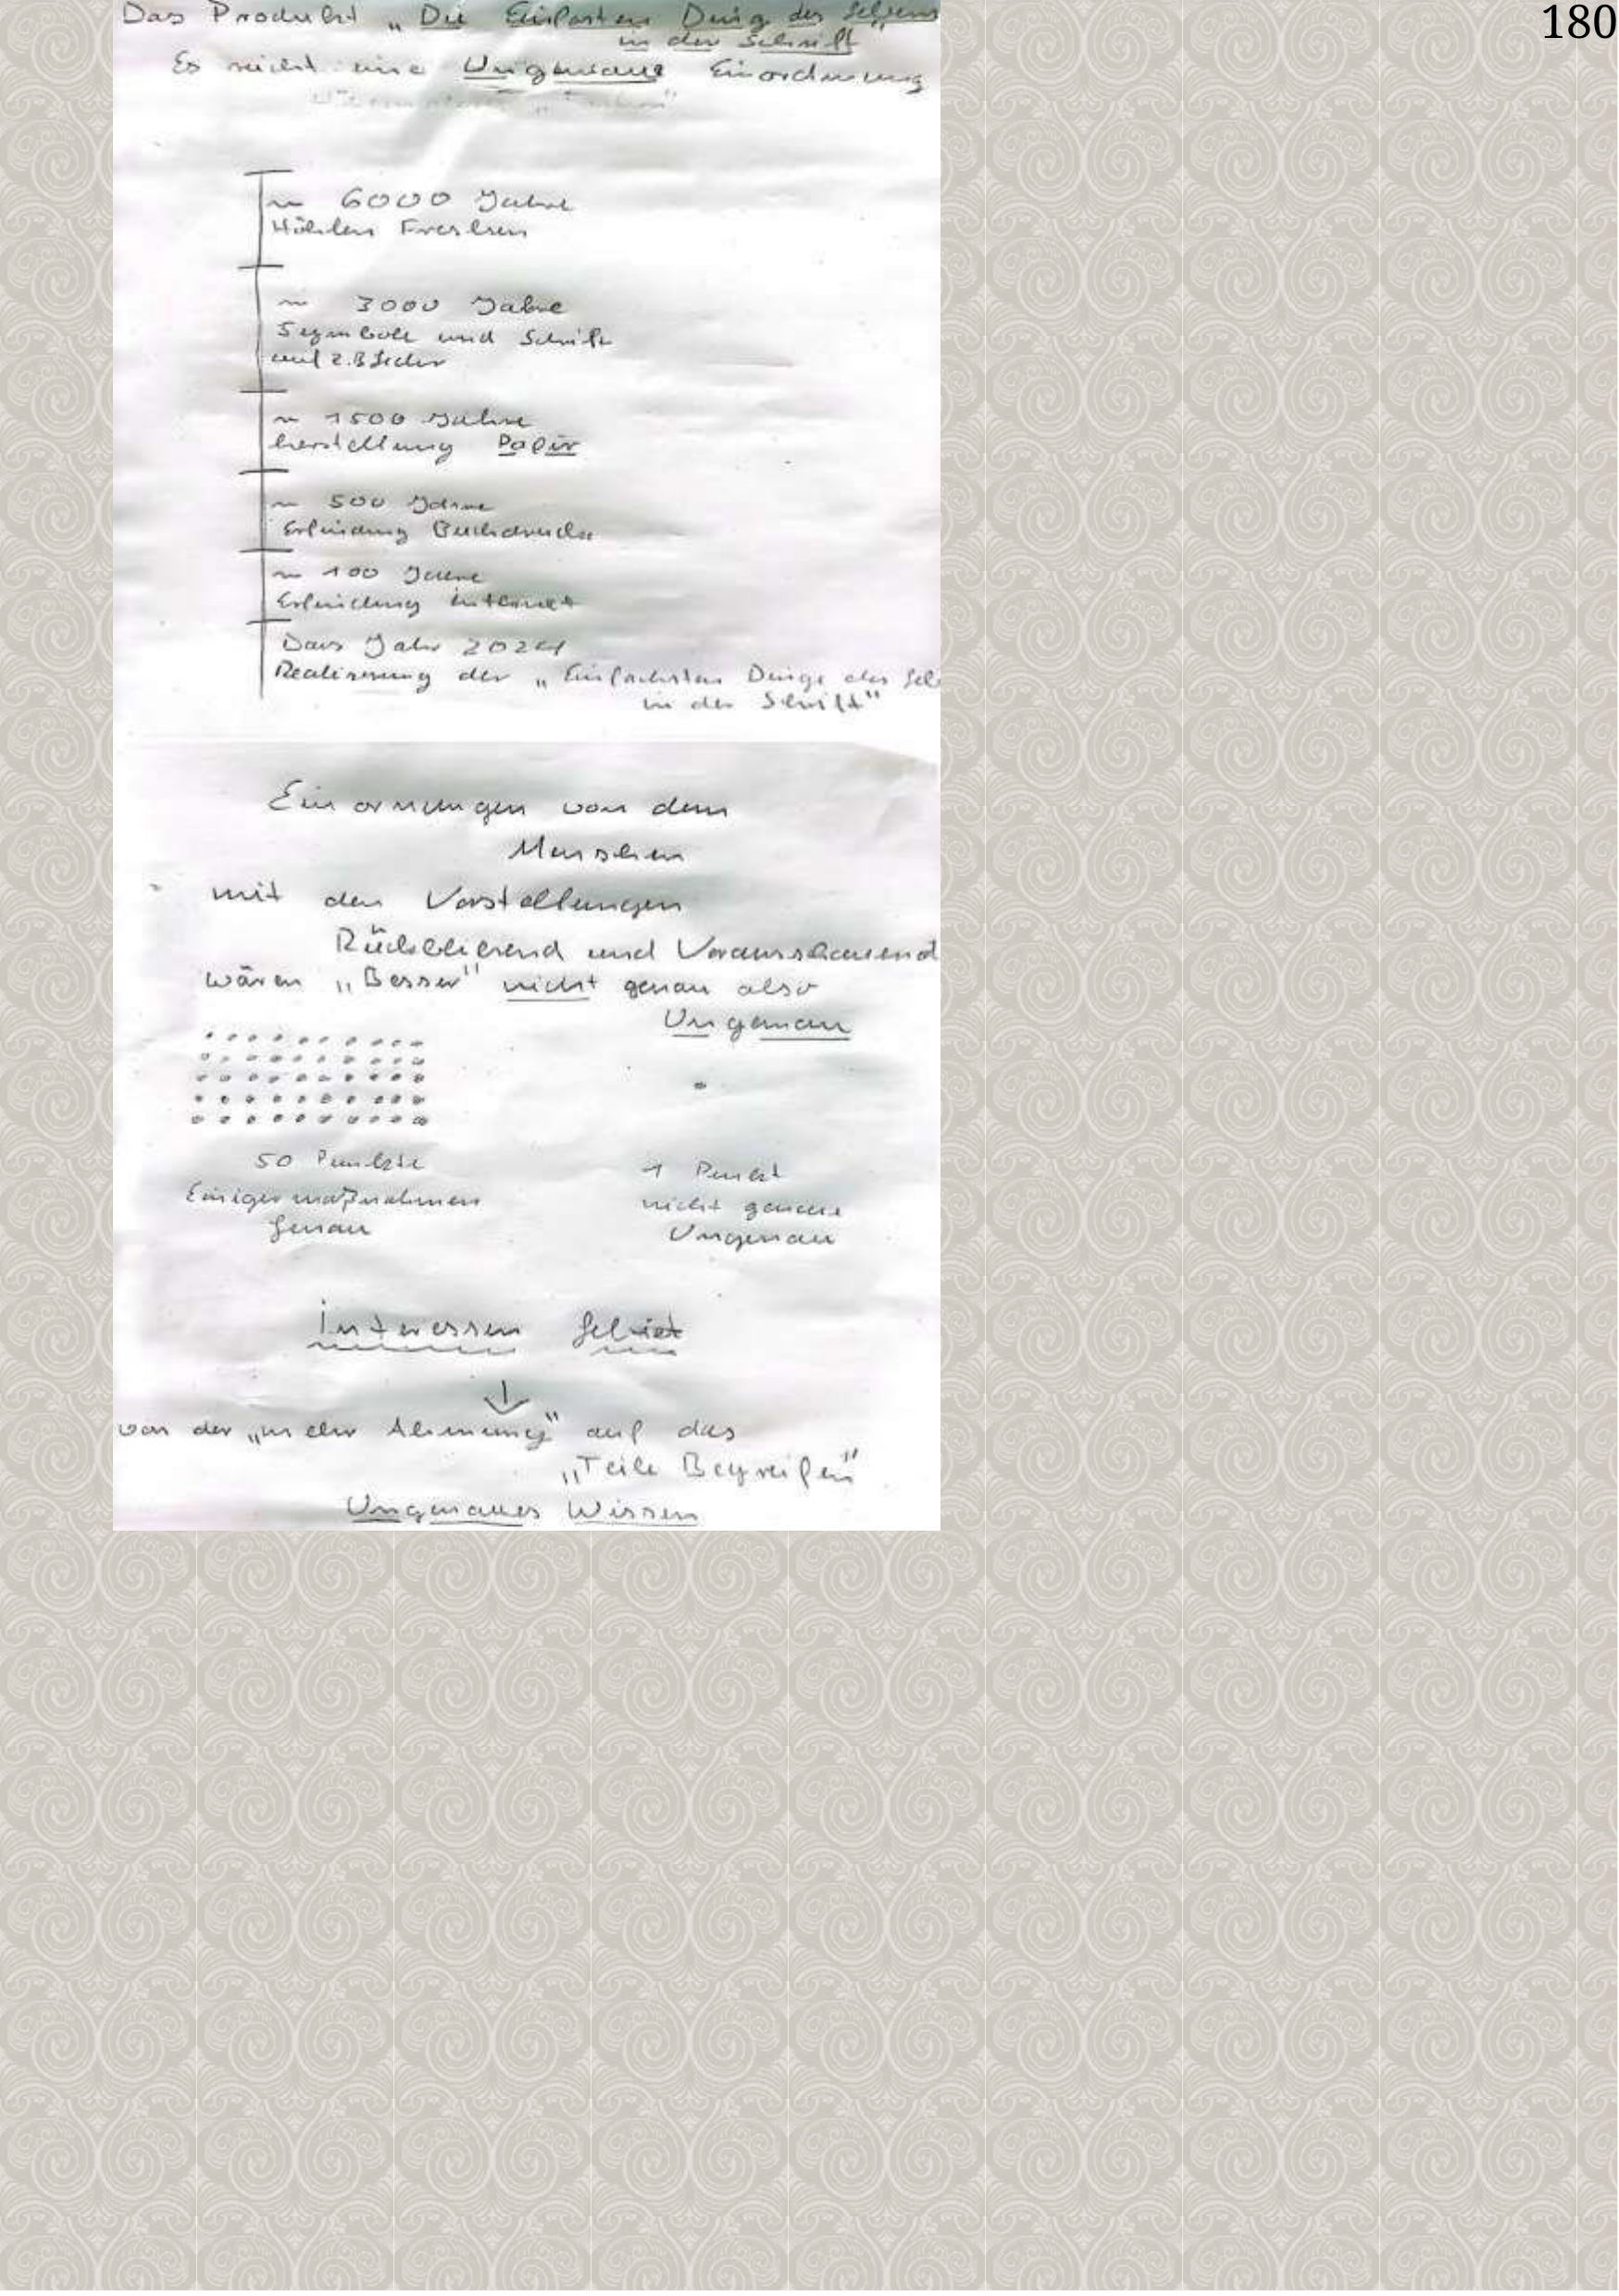 180
Das Produkt „Die Einfasten Ding des
in der Schrift
Es reicht eine Ungenaue Einordnung
~ 6000 Jahre
Höhlen Fresken
~ 3000 Jahre
Seymbole und Schrift
auf z.B Leder
~ 1500 Jahre
herstellung Papir
~ 500 Jahre
Erfindung Buchdrucke
~ 100 Jahre
Erfindung internet
Das Jahr 2024
Realisierung der „Einfachsten Dinge des
in der Schrift"
Einornungen von dem
Menschen
mit den Vorstellungen
Rückblickend und Vorausschauend
wären „Besser" nicht genau also
Ungenau
50 Punkte
1 Punkt
Einigermaßnahmen
nicht genaue
Genau
Ungenau
Interessen Gebiet
von der „mehr Ahnung" auf das
„Teile Begreifen"
Ungenaues Wissen